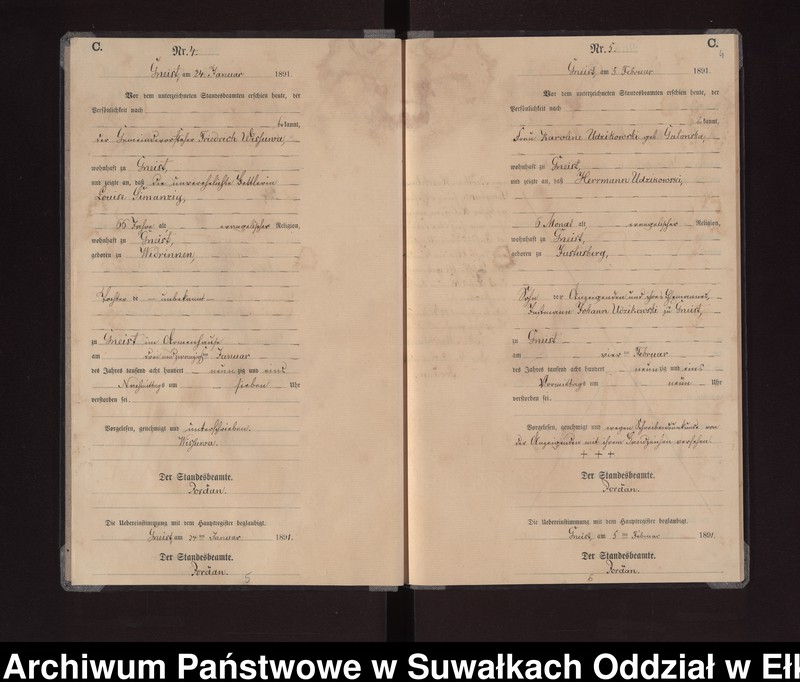 C.
Nr. 4.
Gneist, am 24. Januar 1891.
Vor dem unterzeichneten Standesbeamten erschien heute, der
Persönlichkeit nach
bekannt,
der Gemeindevorsteher Friedrich
wohnhaft zu Gneist,
und zeigte an, daß die unverehelichte Bettlerin
Louise
Jahre alt evangelischer Religion,
wohnhaft zu Gneist,
geboren zu Widrinnen,
Tochter de unbekannt
zu Gneist im Armenhause
am Januar
des Jahres tausend acht hundert neunzig und eins
Nachmittags um sieben Uhr
verstorben sei.
Vorgelesen, genehmigt und unterschrieben.
Der Standesbeamte.
Jordan.
Die Uebereinstimmung mit dem Hauptregister beglaubigt.
Gneist am 24ten Januar 1891.
Der Standesbeamte.
Jordan.
5
C.
4
Nr. 5.
Gneist, am 5. Februar 1891.
Vor dem unterzeichneten Standesbeamten erschien heute, der
Persönlichkeit nach
bekannt,
Frau Karoline Udzikowski geb. Galonska,
wohnhaft zu Gneist,
und zeigte an, daß Herrmann Udzikowski,
Monat alt evangelischer Religion,
wohnhaft zu Gneist,
geboren zu
Sohn der Anzeigenden und ihres Ehemannes,
Johann Udzikowski zu Gneist,
zu Gneist
am vierten Februar
des Jahres tausend acht hundert neunzig und eins
Vormittags um neun Uhr
verstorben sei.
Vorgelesen, genehmigt und wegen Schreibensunkunde von
der Anzeigenden mit ihrem Handzeichen versehen.
+ + +
Der Standesbeamte.
Jordan.
Die Uebereinstimmung mit dem Hauptregister beglaubigt.
Gneist, am 5ten Februar 1891.
Der Standesbeamte.
Jordan.
6
Archiwum Państwowe w Suwałkach Oddział w Ełk